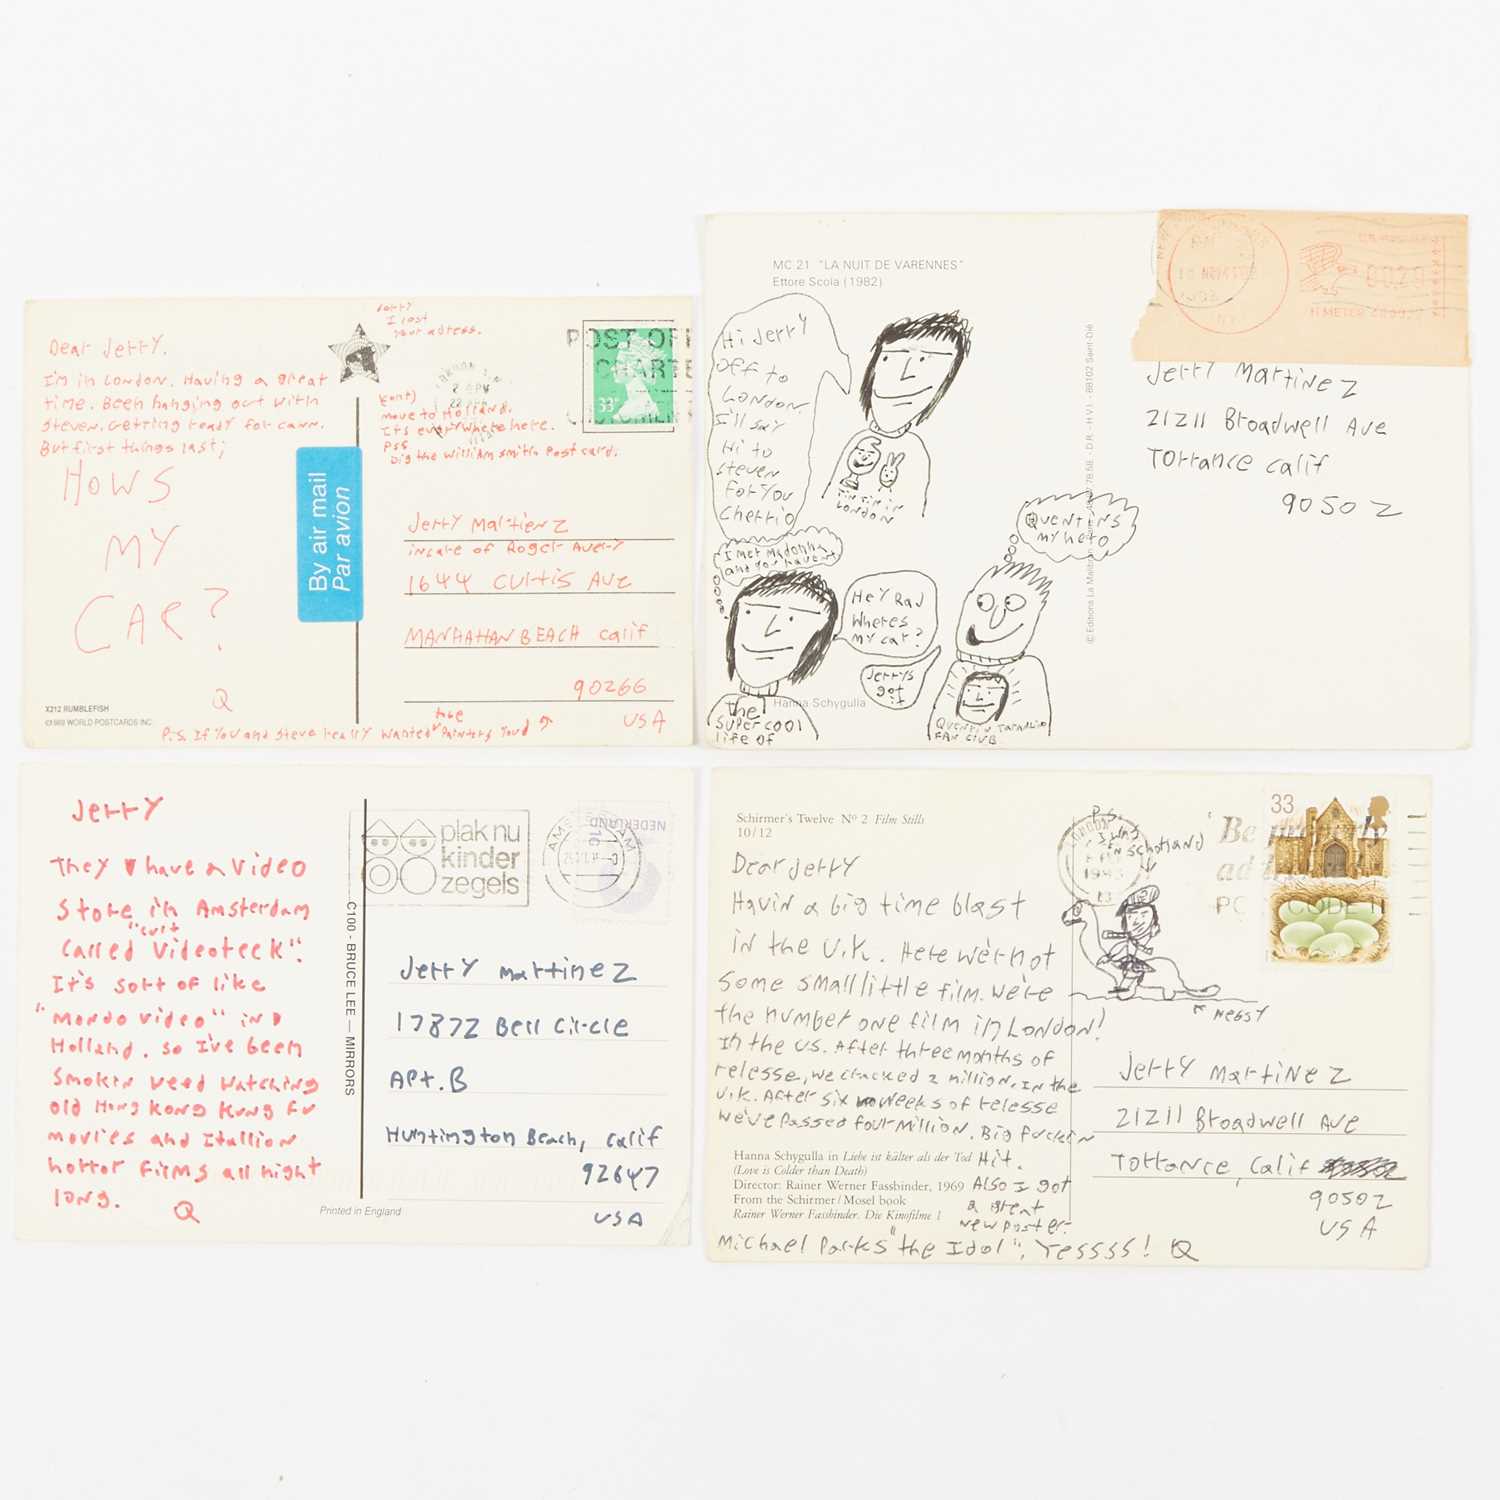 sorry
I lost
your adress.
Dear Jerry.
I'm in London. Having a great
time. Been hanging out with
Steven. Getting ready for cann.
But first things last;
HOWS
MY
CAR?
Q
(cont)
move to Holland.
It's everywhere here.
PSS.
Dig the William Smith Post card.
POST OFF
CHARTE
33P
By air mail
Par avion
Jerry Martienz
incare of Roger Avery
1644 Curtis Ave
MANHAHAN BEACH Calif
90266
USA
X212 RUMBLEFISH
©1989 WORLD POSTCARDS INC.
P.S. If You and Steve really wanted the Painters Toud
MC 21 "LA NUIT DE VARENNES"
Ettore Scola (1982)
Hi Jerry
Off to
London.
I'll say
Hi to
Steven
For you
Cherrio
TinTin in
London
I met Madonna
and you havent
Hey Rad
Wheres
My car?
Jerrys
got
it
Quentins
my hero
The
Super cool
life of
Hanna Schygulla
Quentin Tarantino
Fan Club
Jerry Martinez
21211 Broadwell Ave
Torrance Calif
90502
Jerry
They have a video
Store in Amsterdam
called "Cult Videoteck".
It's sort of like
"Mondo Video" in
Holland. So I've been
smokin weed watching
old Hong Kong Kung Fu
movies and Itallion
horror films all night
long.
Q
plak nu
kinder
zegels
NEDERLAND
C100 - BRUCE LEE — MIRRORS
Jerry Martinez
17872 Bell Circle
Apt. B
Huntington Beach, Calif
92647
USA
Printed in England
Schirmer's Twelve Nº 2 Film Stills
10/12
Dear Jerry
Havin a big time blast
in the U.K. Here we're not
some small little film. We're
the number one film in London!
In the US. After three months of
relesse, we cracked 2 million. In the
U.K. After six weeks of relesse
we've passed four million. Big fuckin
Hit.
Also I got
a great
new poster-
Michael Parks "The Idol", Yessss! Q
Hanna Schygulla in Liebe ist kälter als der Tod
(Love is Colder than Death)
Director: Rainer Werner Fassbinder, 1969
From the Schirmer/Mosel book
Rainer Werner Fassbinder. Die Kinofilme 1
P.S.
I was
in Schotland
Nessy
LONDON
1993
33
Jerry Martinez
21211 Broadwell Ave
Torrance, Calif
90502
USA